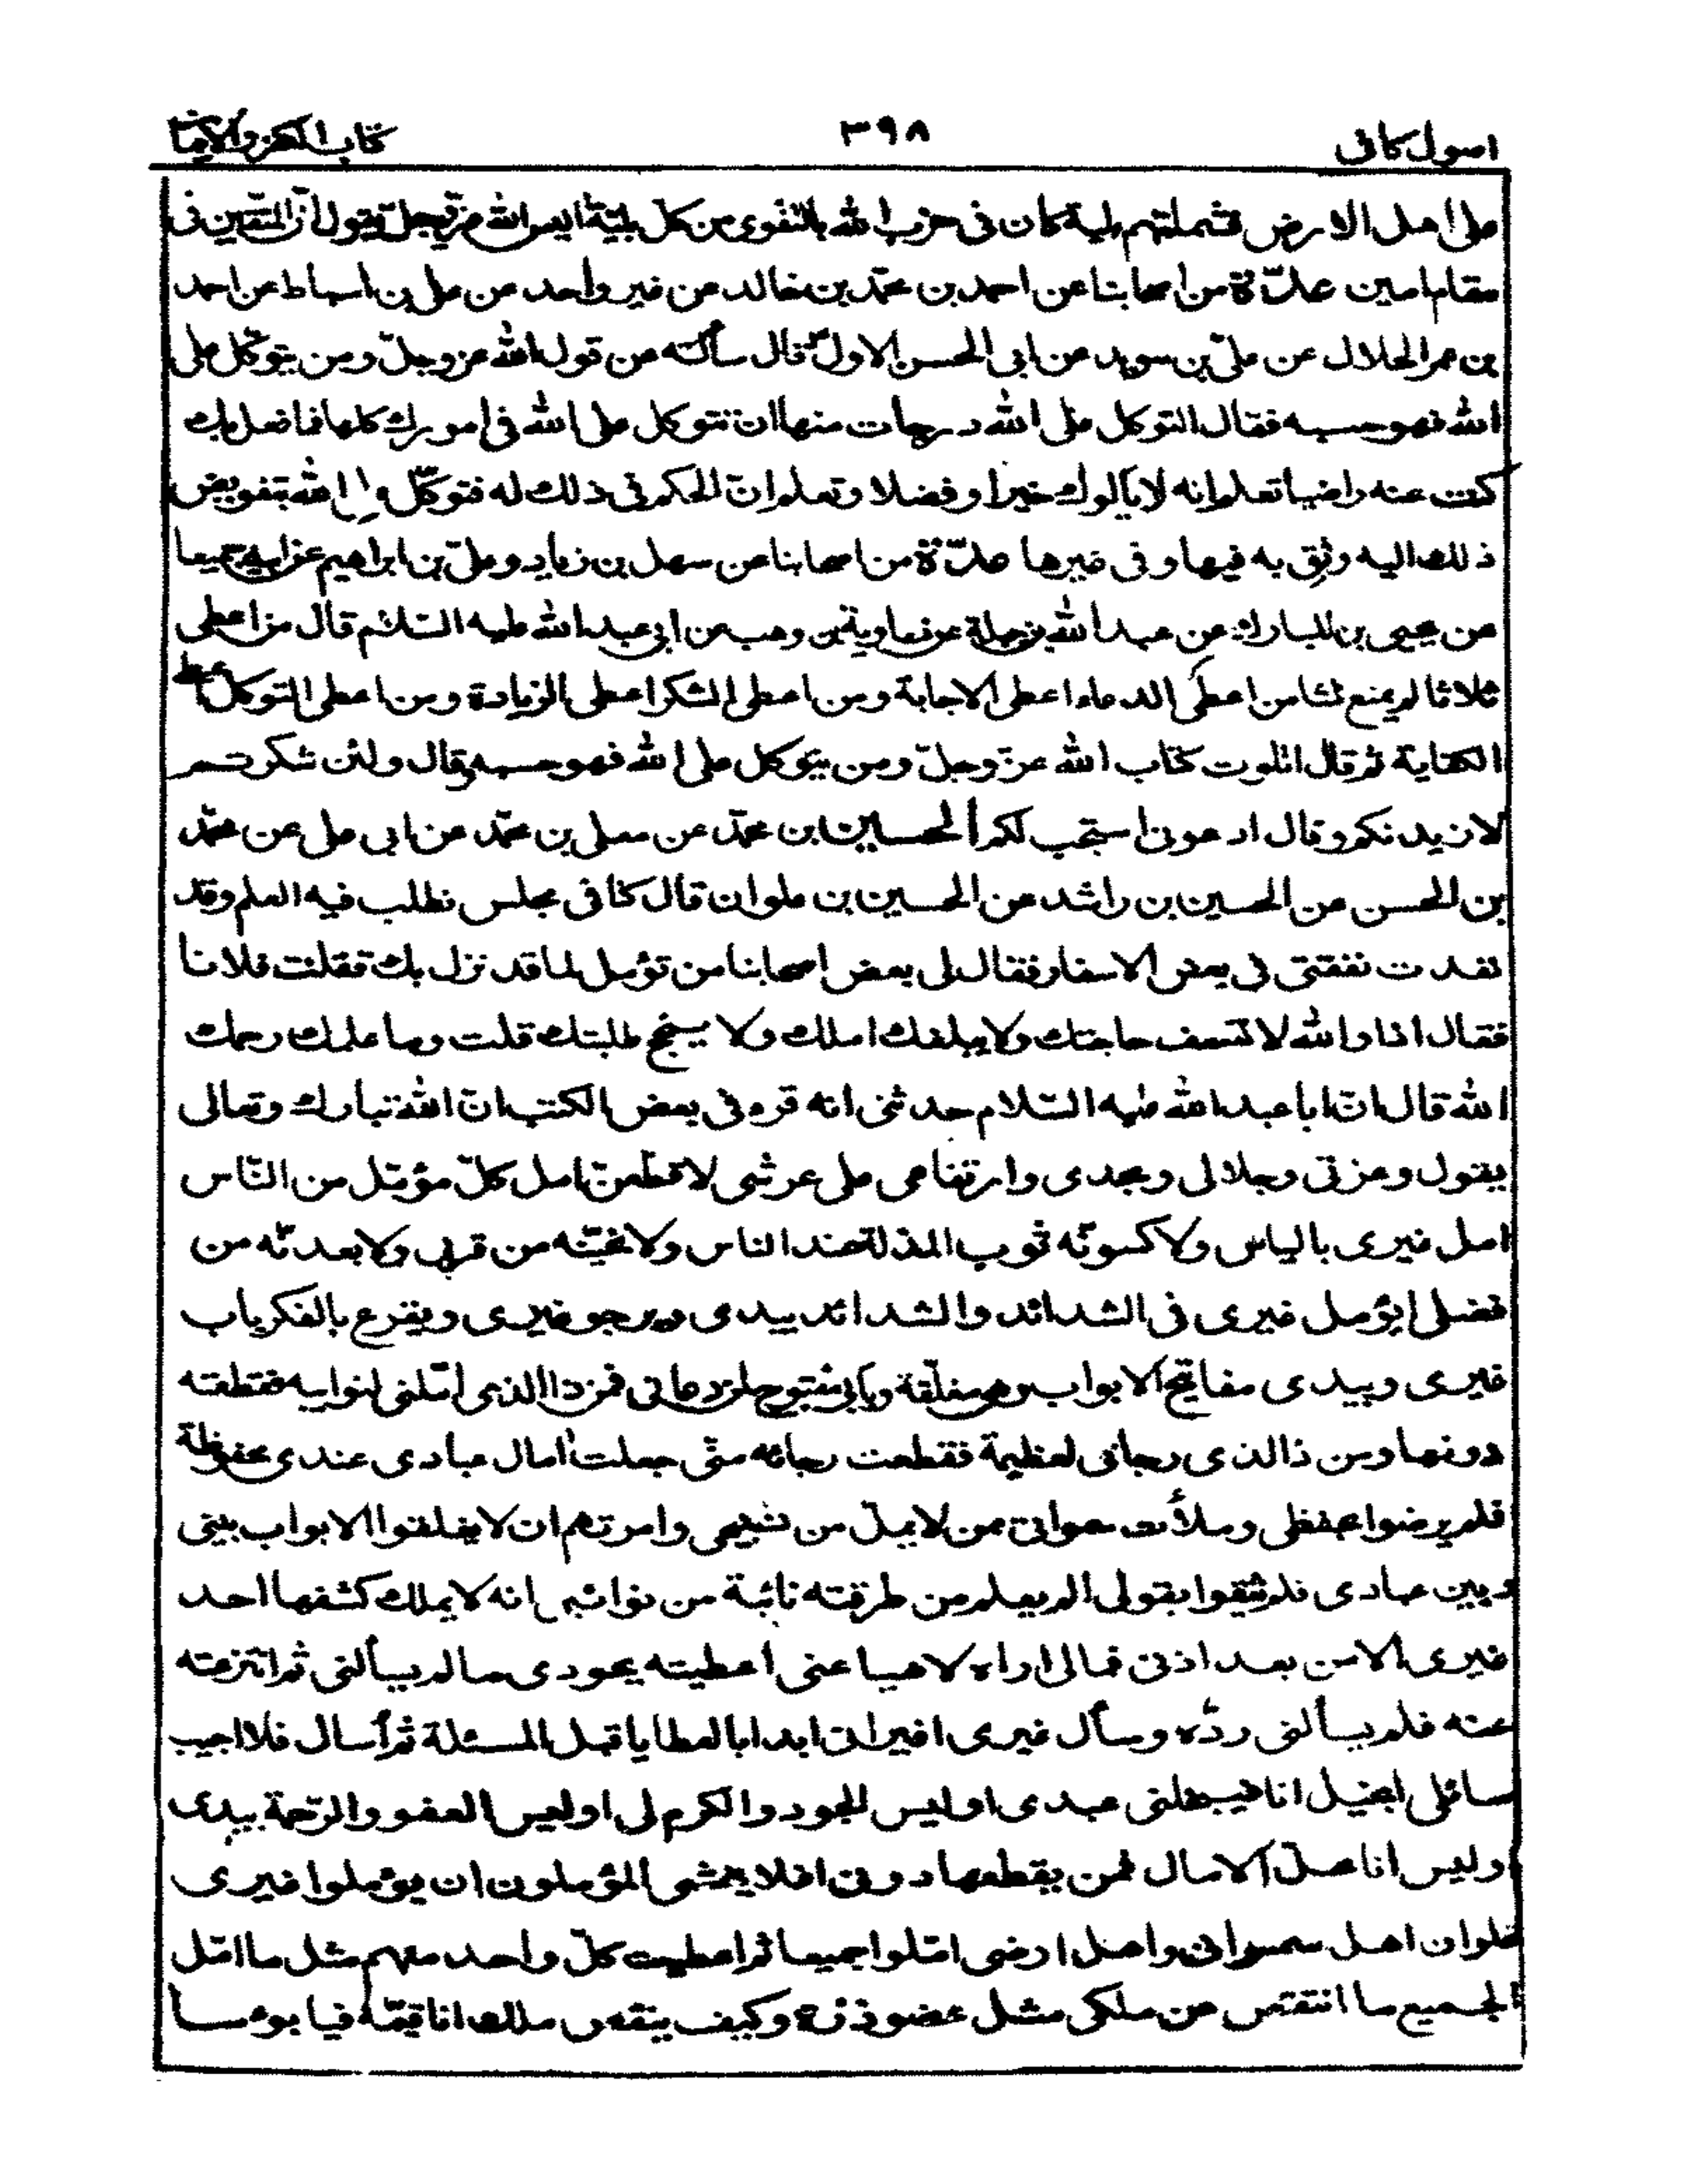 اصول كافى ٣٩٨ كتاب الكفر والايمان
على اهل الارض فشملتهم بلية كان فى حزب الله بالتقوى من كل بلية اليس الله عزّ وجلّ يقول انّ المتقين فى
مقام امين عدّة من اصحابنا عن احمد بن محمّد بن خالد عن غير واحد عن على بن اسباط عن احمد
بن عمر الحلال عن علىّ بن سويد عن ابى الحسن الاول قال سألته عن قول الله عز وجلّ ومن يتوكّل على
الله فهو حسبه فقال التوكل على الله درجات منها ان تتوكل على الله فى امورك كلها فما فعل بك
كنت عنه راضيا تعلم انه لا يألوك خيرا وفضلا وتعلم انّ الحكم فى ذلك له فتوكّل على الله بتفويض
ذلك اليه وثق به فيها وفى غيرها عدّة من اصحابنا عن سهل بن زياد وعلىّ بن ابراهيم عن ابيه جميعا
عن يحيى بن المبارك عن عبد الله بن جبلة عن معاوية بن وهب عن ابى عبد الله عليه السّلام قال من اعطى
ثلاثا لم يمنع ثلثا من اعطى الدعاء اعطى الاجابة ومن اعطى الشكر اعطى الزيادة ومن اعطى التوكل اعطى
الكفاية ثم قال اتلوت كتاب الله عزّ وجلّ ومن يتوكل على الله فهو حسبه وقال ولئن شكرتم
لازيدنكم وقال ادعونى استجب لكم الحسين بن محمّد عن معلى بن محمّد عن ابى على عن محمّد
بن الحسن عن الحسين بن راشد عن الحسين بن علوان قال كنا فى مجلس نطلب فيه العلم وقد
نفدت نفقتى فى بعض الاسفار فقال لى بعض اصحابنا من تؤمل لما قد نزل بك فقلت فلانا
فقال اذا والله لا تسعف حاجتك ولا يبلغك املك ولا ينجح طلبتك قلت وما علمك رحمك
الله قال انّ ابا عبد الله عليه السّلام حدثنى انه قرء فى بعض الكتب انّ الله تبارك وتعالى
يقول وعزتى وجلالى ومجدى وارتفاعى على عرشى لاقطعنّ امل كلّ مؤمّل من النّاس
امل غيرى بالياس ولاكسونّه ثوب المذلة عند الناس ولانحيّنّه من قربى ولابعدنّه من
فضلى ايؤمل غيرى فى الشدائد والشدائد بيدى ويرجو غيرى ويقرع بالفكر باب
غيرى وبيدى مفاتيح الابواب وهى مغلّقة وبابى مفتوح لمن دعانى فمن ذا الذى امّلنى لنوايبه فقطعته
دونها ومن ذا الذى رجانى لعظيمة فقطعت رجائه منّى جعلت آمال عبادى عندى محفوظة
فلم يرضوا بحفظى وملأت سمواتى ممن لا يملّ من تسبيحى وامرتهم ان لا يغلقوا الابواب بينى
وبين عبادى فلم يثقوا بقولى الم يعلم من طرقته نائبة من نوائبى انه لا يملك كشفها احد
غيرى الا من بعد اذنى فمالى اراه لاهيا عنى اعطيته بجودى ما لم يسألنى ثم انتزعته
عنه فلم يسألنى ردّه وسأل غيرى افيرانى ابدا بالعطايا قبل المسئلة ثم أسال فلا اجيب
سائلى ابخيل انا فيبخلنى عبدى اوليس الجود والكرم لى اوليس العفو والرّحمة بيدى
اوليس انا محلّ الامال فمن يقطعها دونى افلا يخشى المؤملون ان يؤملوا غيرى
فلو ان اهل سمواتى واهل ارضى امّلوا جميعا ثم اعطيت كلّ واحد منهم مثل ما امّل
الجميع ما انتقص من ملكى مثل عضو ذرّة وكيف ينقص ملك انا قيّمه فيا بؤسا